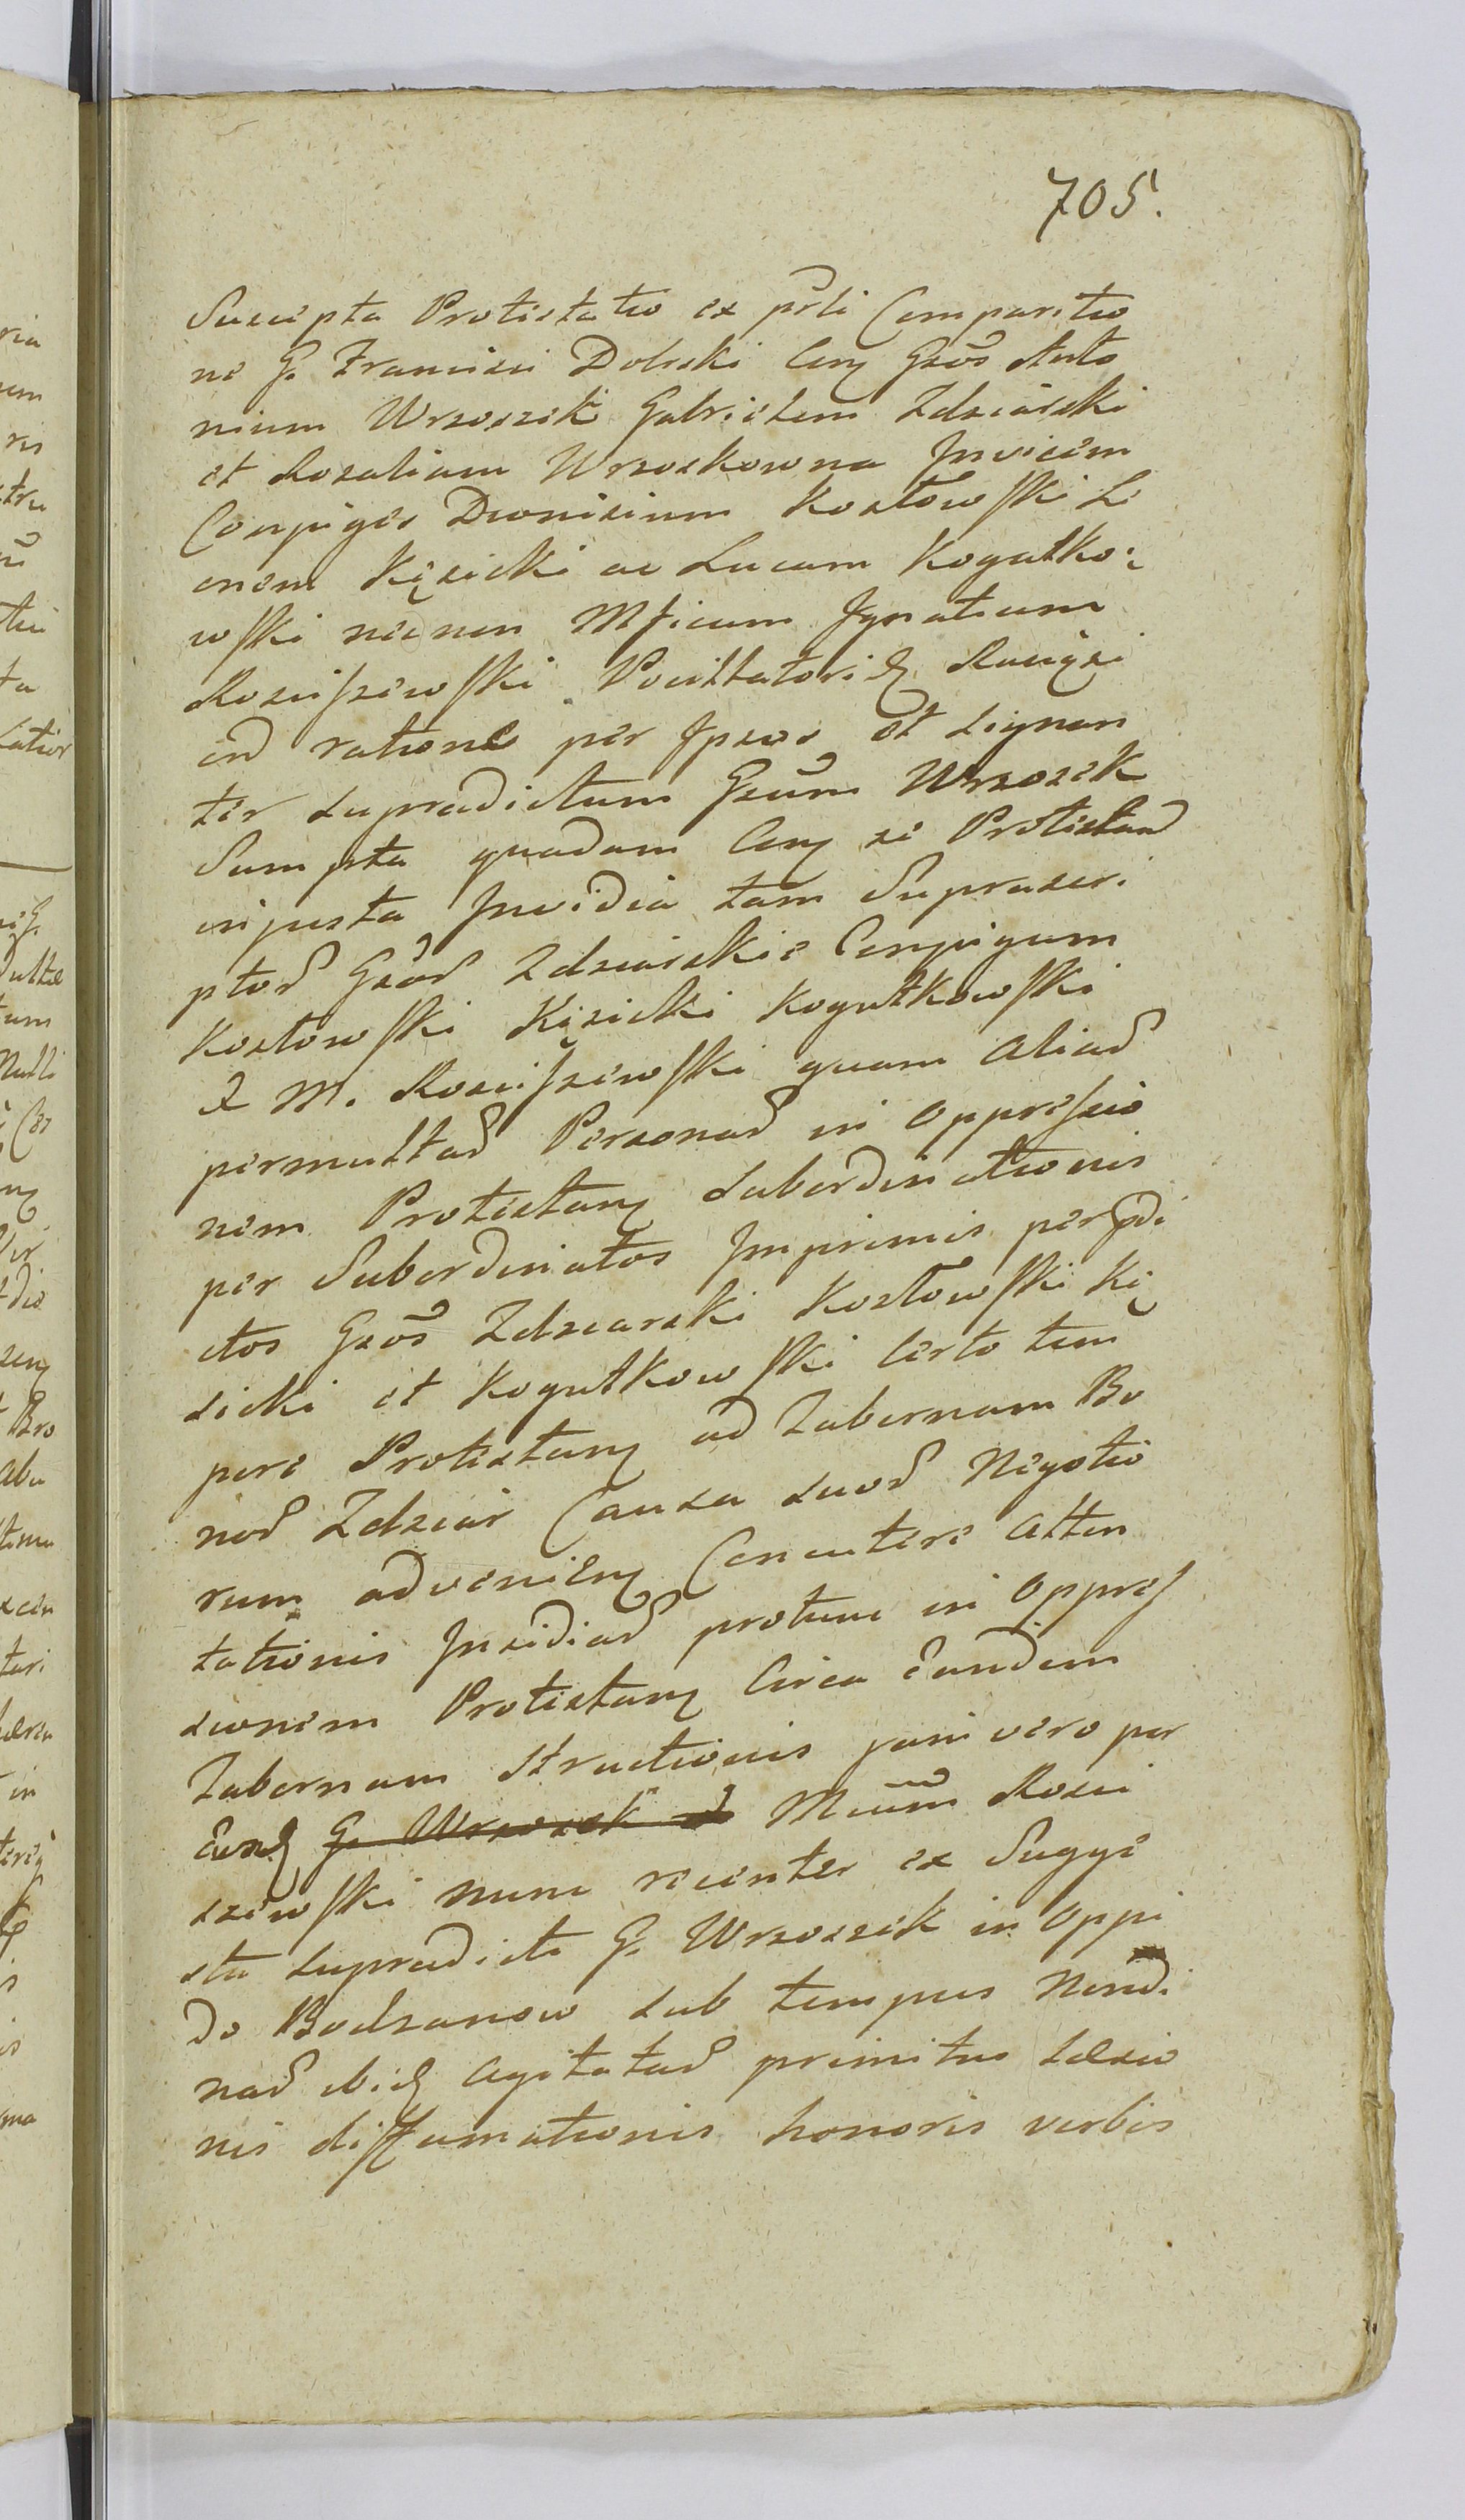 705.
Suscepta Protestatio ex prli Comparitio
ne G. Francisci Dolski Con Gsōs Anto
nium Wrzoszek Gabrielem Zdziarski
et Rosaliam Wrzoskowna Invicem
Conjuges Dionisium Kozłowski Le
onem Kęsicki ac Lucam Kogutko:
wski nec non Mficum Ignatium
Rosciszewski Pocillatorid
eo ratione per Ipsos et signan
ter supradictum Gsūm Wrzosek
Sumpta quadam Con se Protestan
injusta Invidia tam Suprascri
ptos Gsos Zdziarskie Conjugum
Kozłowski Kęsicki Kogutkowski
& M. Rosciszewski quam alias
permultas Personas in oppressio
nem Protestan subordinationis
per Subordinatos Imprimis per pdi
ctos Gsōs Zdziarski Kozłowski Kę
sicki et Kogutkowski certo tem
pore Protestan ad Tabernam Bo
nor Zdziar Causa suor Negotio
rum advenien Concutere atten
tationis Insidias protunc in oppres
sionem Protestan Circa eandem
Tabernam structionis jam vero per
eund G. Wrzoszek & Mcum Rosci
szewski nunc recenter ex Sugge
stu supradicti G. Wrzoszek in oppi
do Bodzanow sub tempus Nundi
nar ibid agitatar primitus læsio
nis diffamationis honoris verbis